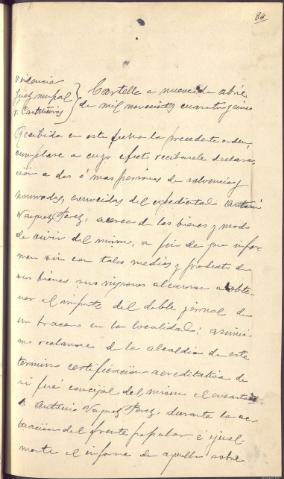 84
Providencia
Juez mupal
Sr. Castiñeiras
Cartelle a nueve de abril
de mil novecientos cuarenta y cinco
Recibida en esta fecha la precedente orden,
cumplase a cuyo efecto recibanse declara-
ción a dos ó mas personas de solvencia y
honradez, conocidas del expedientado Antonio
Vazquez Perez, acerca de los bienes y modo
de vivir del mismo, a fin de que infor-
men si con tales medios y producto de
sus bienes sus ingresos alcanzan a obte-
ner el importe del doble jornal de
un bracero en la localidad; asimis-
mo reclamese de la alcaldia de este
termino certificación acreditativa de
si fué concejal del mismo el encartado
D. Antonio Vazquez Perez, durante la ac-
tuación del frente popular é igual-
mente el informe de aquella sobre